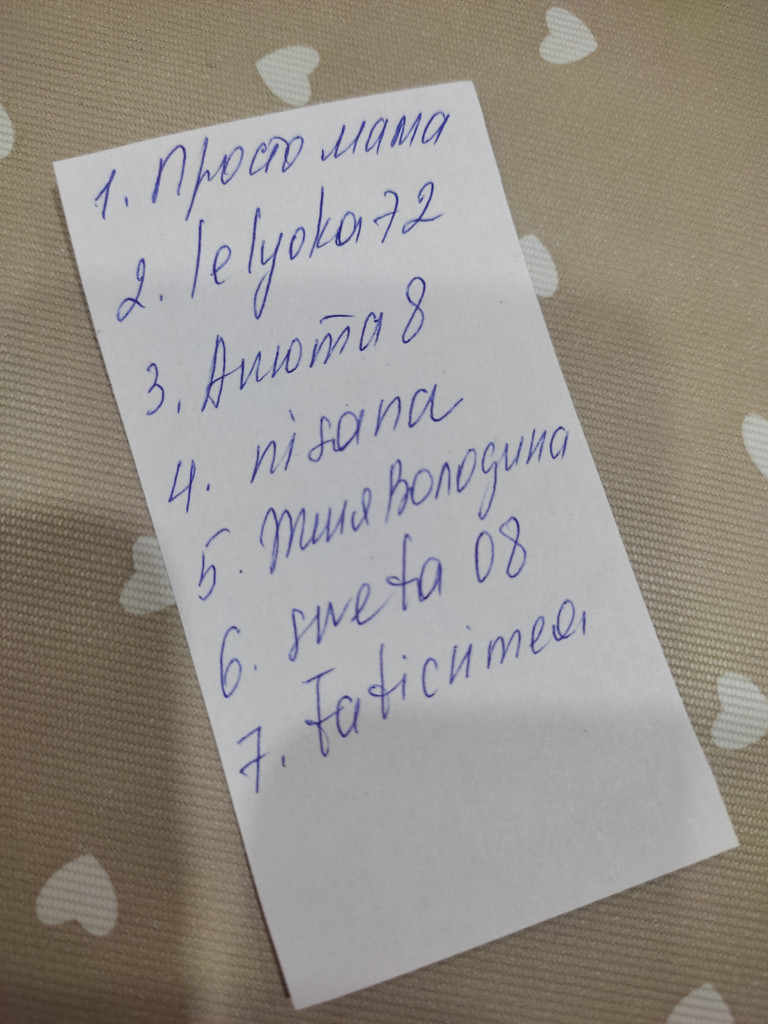 1. Просто мама
2. lelyoka72
3. Анюта 8
4. nisana
5. Женя Володина
6. sweta 08
7.